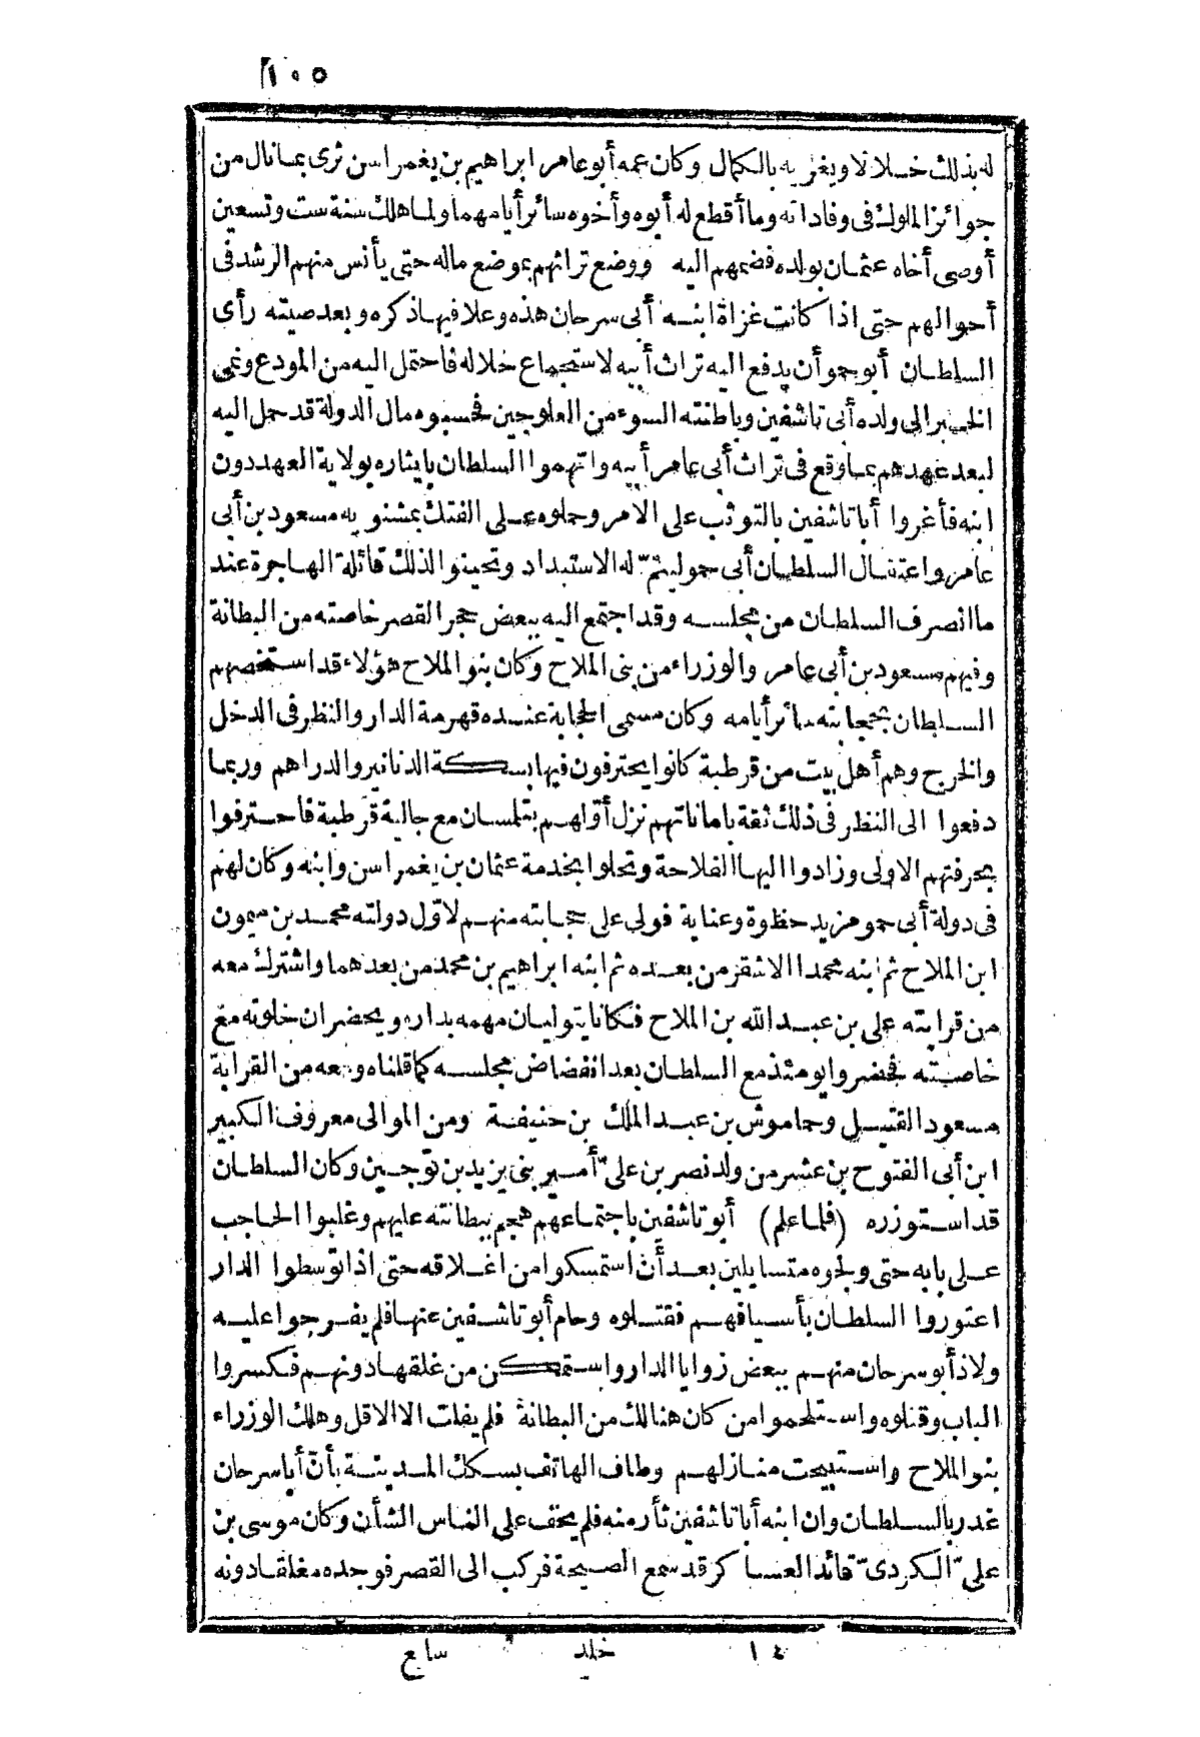 ١٠٥
له بذلك خلالا ويغريه بالكمال وكان عمه أبو عامر ابراهيم بن يغمراسن ثرى بما نال من
جوائز الملوك فى وفاداته وما أقطع له أبوه وأخوه سائر أيامهما ولما هلك سنة ست وتسعين
أوصى أخاه عثمان بولده فضمهم اليه ووضع تراثهم بموضع ماله حتى يأنس منهم الرشد فى
أحوالهم حتى اذا كانت غزاة ابنه أبى سرحان هذه وعلا فيها ذكره وبعد صيته رأى
السلطان أبو حمو أن يدفع اليه تراث أبيه لاستجماع خلاله فاحتمل اليه من المودع ونمى
الخبر الى ولده أبى تاشفين وباطنته السوء من العلوجين فحسبوه مال الدولة قد حمل اليه
لبعد عهدهم بما وقع فى تراث أبى عامر أبيه واتهموا السلطان بايثاره بولاية العهد دون
ابنه فأغروا أبا تاشفين بالتوثب على الامر وحملوه على الفتك بمشنويه مسعود بن أبى
عامر واعتقال السلطان أبى حمو ليتمّ له الاستبداد وتحينوا لذلك قائلة الهاجرة عند
ما انصرف السلطان من مجلسه وقد اجتمع اليه ببعض حجر القصر خاصته من البطانة
وفيهم مسعود بن أبى عامر والوزراء من بنى الملاح وكان بنو الملاح هؤلاء قد استخصهم
السلطان بحجابته سائر أيامه وكان مسمى الحجابة عنده قهرمة الدار والنظر فى الدخل
والخرج وهم أهل بيت من قرطبة كانوا يحترفون فيها بسكة الدنانير والدراهم وربما
دفعوا الى النظر فى ذلك ثقة باماناتهم نزل أوّلهم بتلمسان مع جالية قرطبة فاحترفوا
بحرفتهم الاولى وزادوا اليها الفلاحة وتحلوا بخدمة عثمان بن يغمراسن وابنه وكان لهم
فى دولة أبى حمو مزيد حظوة وعناية فولى على حجابته منهم لاوّل دولته محمد بن ميمون
ابن الملاح ثم ابنه محمدا الاشقر من بعده ثم ابنه ابراهيم بن محمد من بعدهما واشترك معه
من قرابته على بن عبد الله بن الملاح فكانا يتوليان مهمه بداره ويحضران خلوته مع
خاصته فحضروا يومئذ مع السلطان بعد انفضاض مجلسه كما قلناه ومعه من القرابة
مسعود القتيل وحاموش بن عبد الملك بن حنيفة ومن الموالى معروف الكبير
ابن أبى الفتوح بن عشر من ولد نصر بن علىّ أمير بنى يزيد بن توجين وكان السلطان
قد استوزره (فلما علم) أبو تاشفين باجتماعهم هجم ببطانته عليهم وغلبوا الحاجب
على بابه حتى ولجوه متسايلين بعد أن استمسكوا من اغلاقه حتى اذا توسطوا الدار
اعتوروا السلطان بأسيافهم فقتلوه وحام أبو تاشفين عنها فلم يفرجوا عليه
ولاذ أبو سرحان منهم ببعض زوايا الدار واستمكن من غلقها دونهم فكسروا
الباب وقتلوه واستلحموا من كان هنالك من البطانة فلم يفلت الا الاقل وهلك الوزراء
بنو الملاح واستبيحت منازلهم وطاف الهاتف بسكك المدينة بأن أبا سرحان
غدر بالسلطان وان ابنه أبا تاشفين ثأر منه فلم يخف على الناس الشأن وكان موسى بن
علىّ الكردىّ قائد العساكر قد سمع الصيحة فركب الى القصر فوجده مغلقا دونه
١٤ خلد سابع